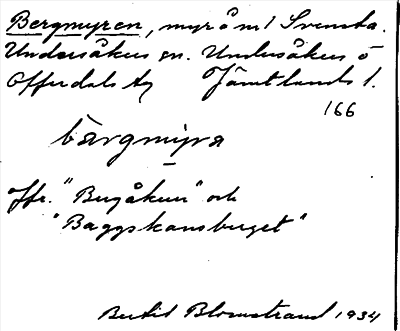 Bergmyren, myr å m! Svenska.
Undersåkers sn. Undersåkers o
Offerdals tg Jämtlands l.
166
bärgmyra
Jfr. "Bugåkern" och
"Baggskansberget"
Bertil Blomstrand 1934